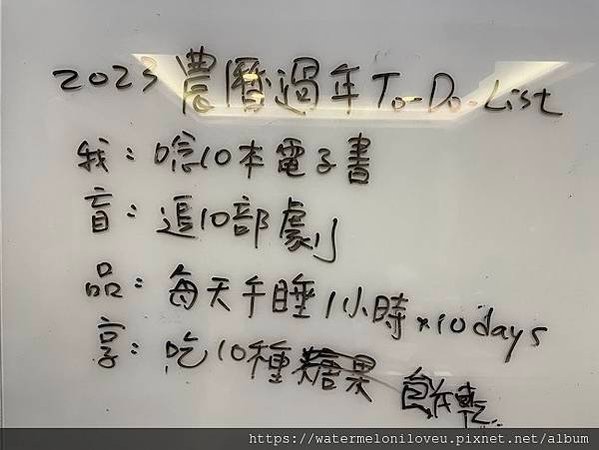 2023 農曆過年 To-Do-List
我：唸10本電子書
盲：追10部劇
品：每天午睡1小時×10days
享：吃10種糖果 餅乾..
https://watermeloniloveu.pixnet.net/album